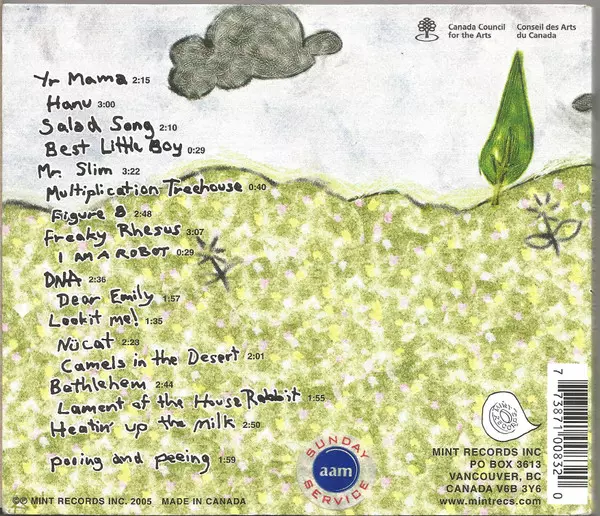 Canada Council for the Arts
Conseil des Arts du Canada
Yr Mama 2:15
Hanu 3:00
Salad Song 2:10
Best Little Boy 0:29
Mr. Slim 3:22
Multiplication Treehouse 0:40
Figure 8 2:48
Freaky Rhesus 3:07
I AM A ROBOT 0:29
DNA 2:36
Dear Emily 1:57
Lookit me! 1:35
Nücat 2:23
Camels in the Desert 2:01
Bathlehem 2:44
Lament of the House Rabbit 1:55
Heatin' up the Milk 2:50
pooing and peeing 1:59
SUNDAY
aam
SERVICE
MINT RECORDS INC
PO BOX 3613
VANCOUVER, BC
CANADA V6B 3Y6
www.mintrecs.com
7 73871 00832 0
©℗ MINT RECORDS INC. 2005 MADE IN CANADA